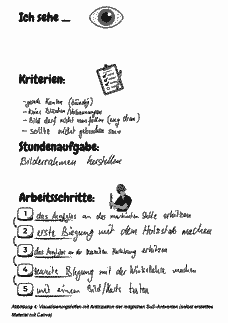 Ich sehe ...
Kriterien:
- gerade Kanten (bündig)
- keine
- Bild darf nicht rausfallen (eng dran)
- sollte nicht gebrochen sein
Stundenaufgabe:
Bilderrahmen herstellen
Arbeitsschritte:
1 das Acrylglas an der markierten Stelle erhitzen
2 erste Biegung mit dem Holzstab machen
3 das Acrylglas an der zweiten Markierung erhitzen
4 zweite Biegung mit der machen
5 mit einem Bild/Karte testen
Abbildung 4: Visualisierungshilfen mit Antizipation der möglichen SuS-Antworten (selbst erstelltes
Material mit Canva)